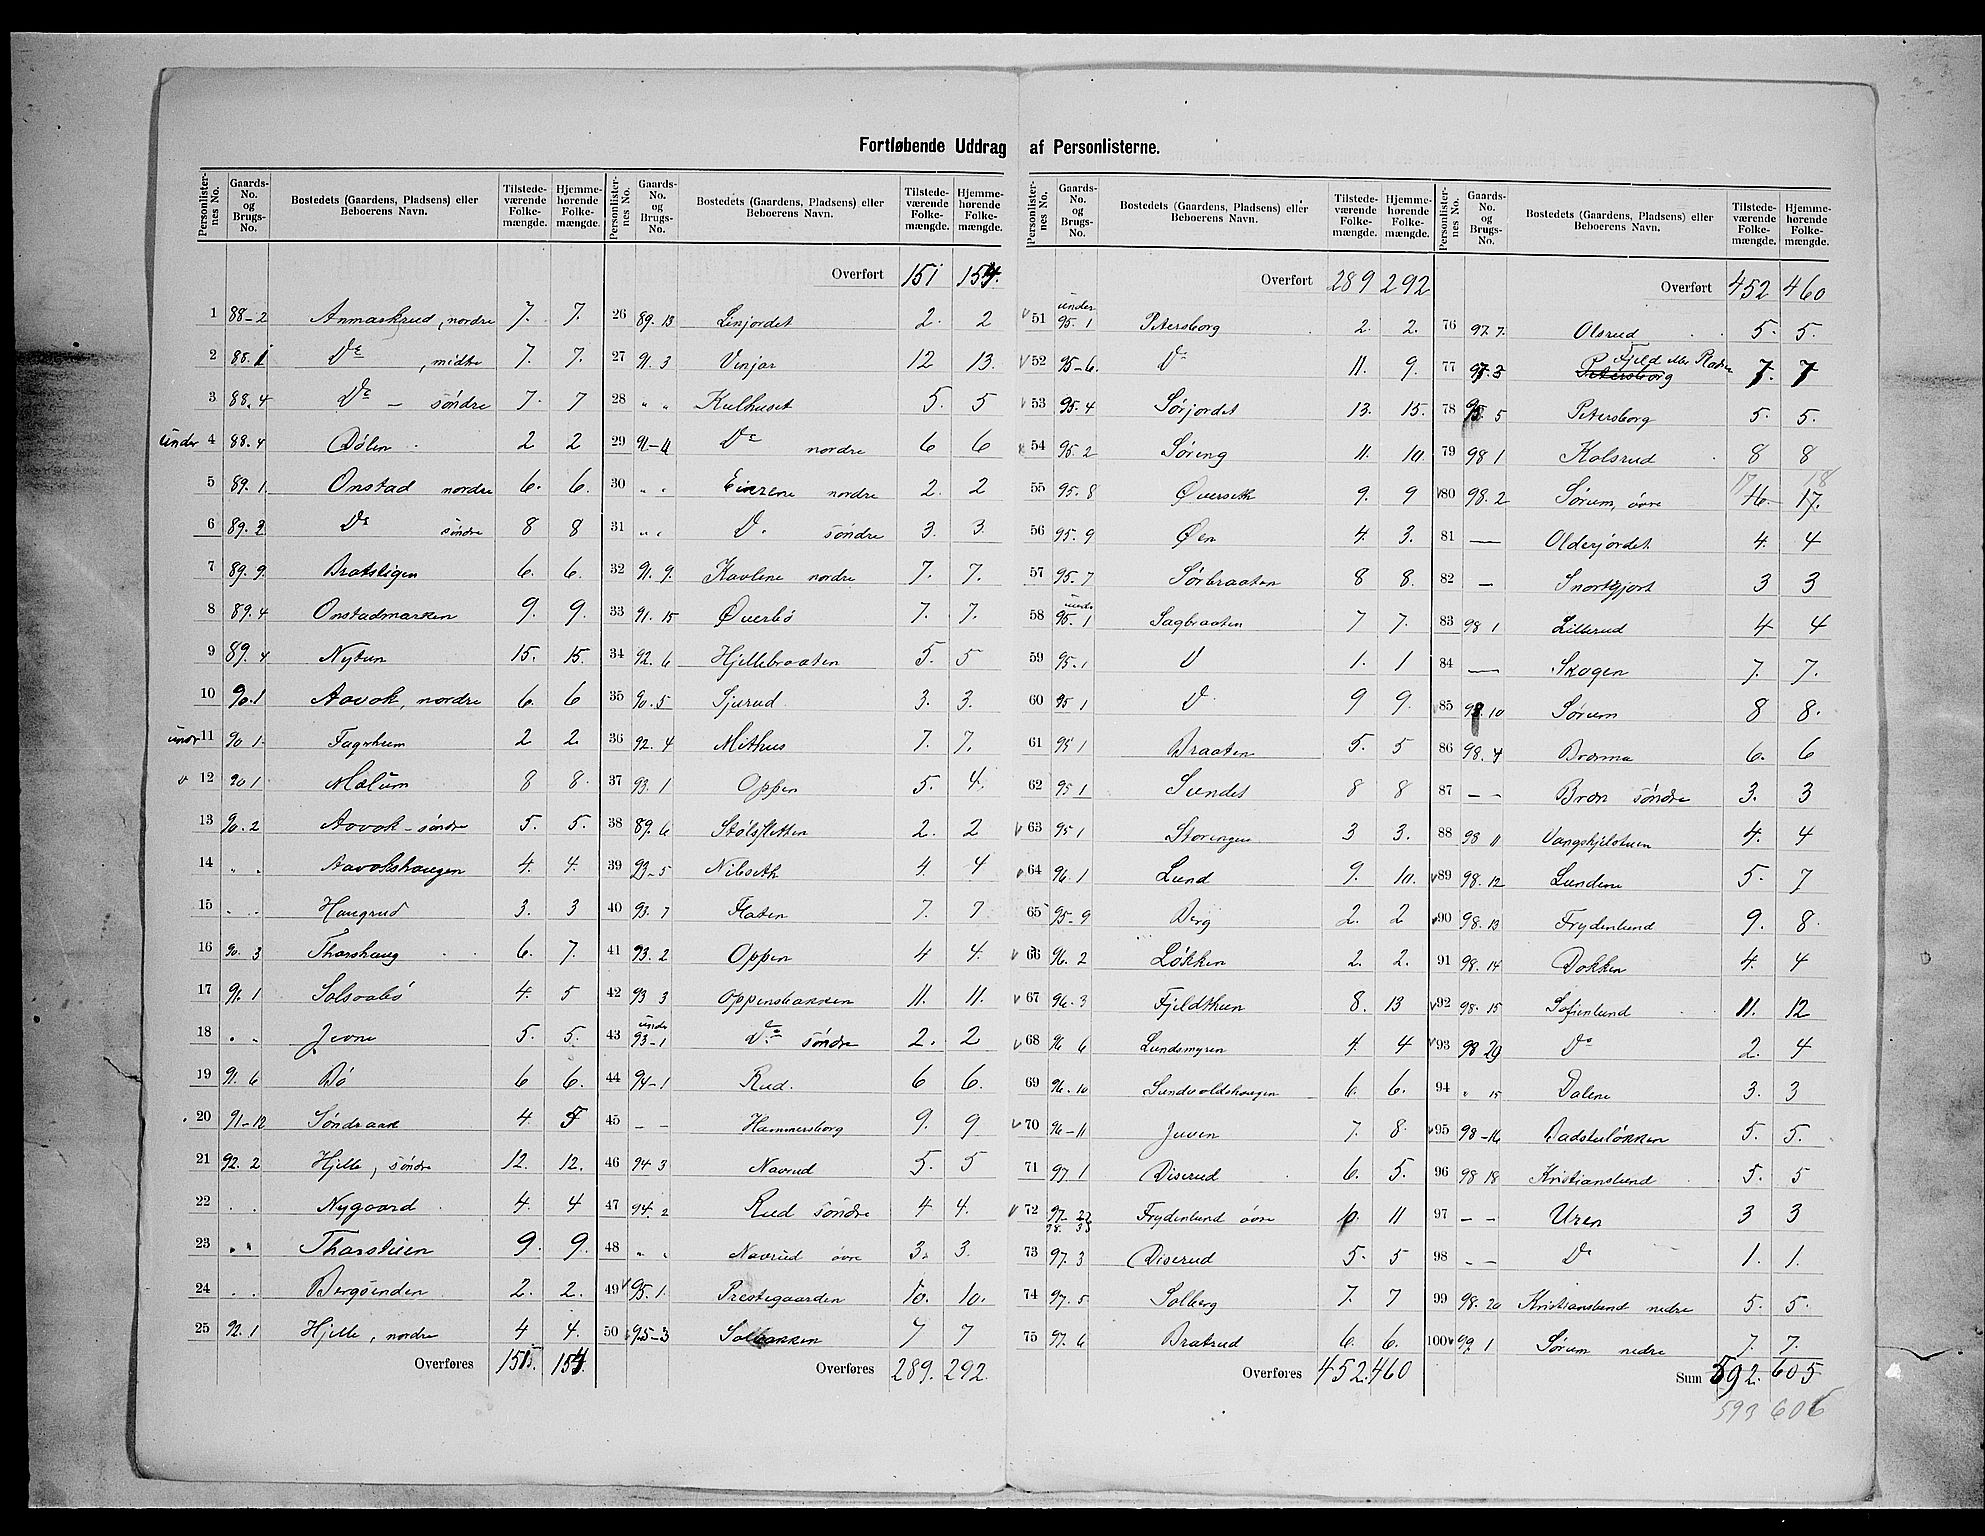 Fortløbende Uddrag af Personlisterne.
Personlisternes No. Gaards-No. og Brugs-No. Bostedets (Gaardens, Pladsens) eller Beboerens Navn. Tilstedeværende Folkemængde. Hjemmehørende Folkemængde.
1 88-2 Anmarkrud, nordre 7. 7.
2 88.1 Do, midtre 7. 7.
3 88.4 Do - søndre 7. 7
under 4 88.4 Dølen 2 2
5 89.1. Onstad nordre 6. 6.
6 89.2 Do søndre 8 8
7 89.9 Bratstigen 6. 6.
8 89.4 Onstadmarken 9. 9.
9 89.4 Nytun 15. 15.
10 90.1 Aavok, nordre 6. 6
under 11 90 1. Fagerhum 2 2.
12 90 1 Mælum 8 8.
13 90.2 Aavok-søndre 5. 5.
14 " " Aavokshaugen 4. 4.
15 " " Haugrud 3. 3
16 90.3 Thorshaug 6. 7.
17 91.1 Solsvabø 4. 5
18 " " Jevne 5. 5.
19 91.6 Bø 6 6.
20 91-12 Søndraak 4. 5
21 92.2 Hjelle, søndre 12. 12.
22 " " Nygaard 4. 4
23 " " Thorstuen 9. 9.
24 " " Bergsenden 2. 2.
25 92.1 Hjelle, nordre 4 4.
Overføres 151. 154.
Overført 151 154.
26 89.13 Linjordet 2. 2
27 91.3 Vinjar 12 13.
28 " " Kulhuset 5. 5
29 91-4 Do nordre 6 6
30 " " nordre 2. 2
31 " " D. søndre 3. 3.
32 91.9. Kavlene nordre 7. 7.
33 91.15 Øverbø 7. 7.
34 92.6 Hjellebraaten 5. 5
35 90.5 Sjurud 3. 3.
36 92.4 Mithus 7. 7.
37 93.1 Oppen 5. 4.
38 89.6 Stølsletten 2. 2
39 93-5 Nilseth 4. 4
40 93.7 Flaten 7. 7
41 93.2 Oppen 4 4.
42 93 3 Oppensbakken 11. 11.
43 under 93-1 Do søndre 2. 2
44 94-1 Rud. 6 6.
45 - - Hammersborg 9. 9
46 94.3 Navrud 5. 5
47 94.2 Rud søndre 4 4.
48 " " Navrud øvre 3. 3.
49 95.1. Prestegaarden 10. 10.
50 95-3 Solbakken 7 7
Overføres 289. 292.
Overført 289 292
51 under 95.1 Petersborg 2. 2.
52 95-6. Do 11. 9.
53 95.4 Sørjordet 13. 15.
54 95.2 Søring 11. 10.
55 95.8 Øverseth 9. 9
56 95.9 Øen 4. 3.
57 95.7 Sørbraaten 8 8.
58 under 95.1 Sagbraaten 7 7.
59 95.1 D 1. 1
60 95 1 D. 9 9.
61 95 1 Braaten 5. 5
62 95 1 Sundet 8 8
63 95 1 Storengen 3 3.
64 96.1 Lund 9. 10.
65 95-9 Berg 2. 2
66 96.2 Løkken 2. 2.
67 96.3 Fjeldthun 8. 13
68 96 6 Lundsmyren 4. 4
69 96.10 Sundvoldshaugen 6. 6.
70 96-11 Juven 7. 8.
71 97.1 Diserud 6. 5.
72 97-22 98.35 Frydenlund øvre 10. 11
73 97.3 Diserud 5. 5
74 97.5 Solberg 7. 7
75 97.6 Bratrud 6. 6.
Overføres 452. 460
Overført 452 460
76 97.7. Olsrud 5. 5.
77 97.3 Petersborg Fjeld eller Pladsen 7. 7
78 95 5 Petersborg 5. 5.
79 98 1 Kolsrud 8 8
80 98.2 Sørum, øvre 16. 17. 17 18
81 — Olderjordet 4. 4
82 — 3 3
83 98 1 Lillerud 4 4
84 — Skogen 7. 7.
85 98 10 Sørum 8 8.
86 98.4 Bromma 6. 6
87 - - Bråten søndre 3. 3
88 98 11 Vangskjelstuen 4. 4
89 98.12 Lundene 5. 7
90 98.13 Frydenlund 9. 8.
91 98.14 Dokken 4. 4
92 98.15 Sofienlund 11. 12
93 98 29 Do 2. 4
94 " 15 Dalene 3. 3
95 98-16 Badstuløkken 5. 5.
96 98 18 Kristianslund 5. 5
97 - - Uren 3 3
98 - - Do 1. 1.
99 98.20 Kristianslund nedre 5. 5.
100 99 1 Sørum nedre 7. 7.
Sum 592. 605
593 606